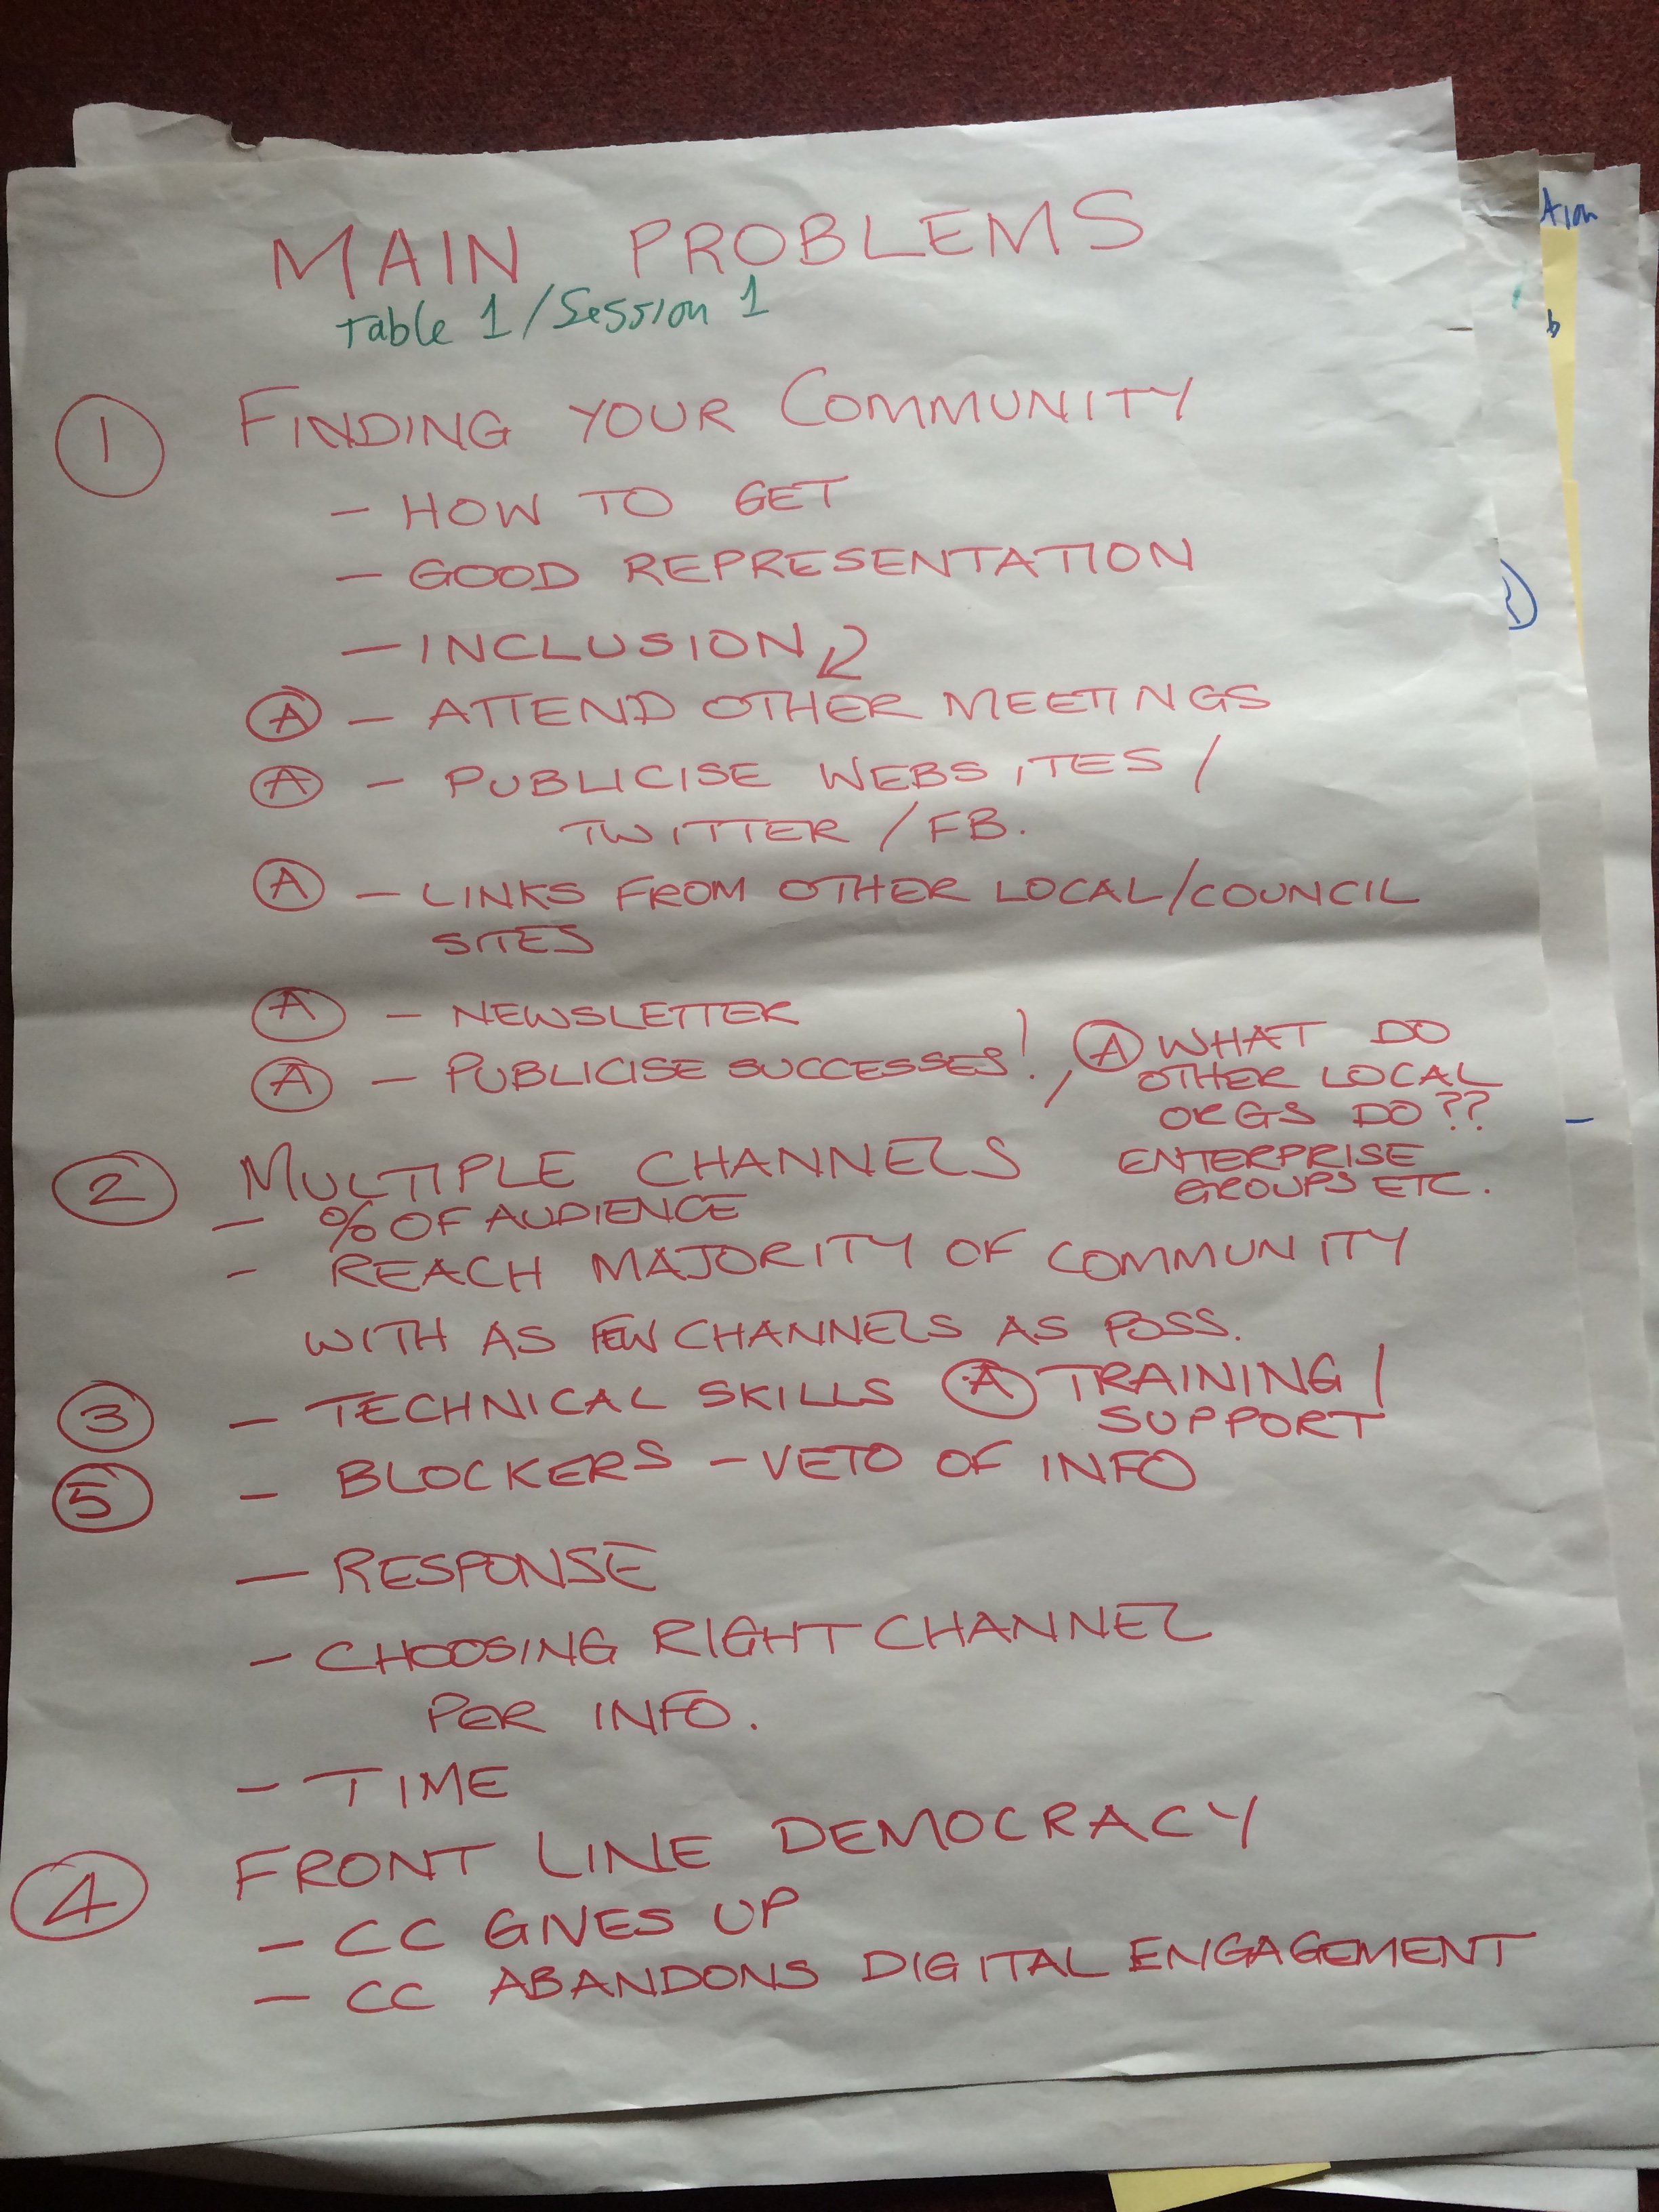 MAIN PROBLEMS
Table 1/Session 1
① FINDING YOUR COMMUNITY
– HOW TO GET
– GOOD REPRESENTATION
– INCLUSION
Ⓐ – ATTEND OTHER MEETINGS
Ⓐ – PUBLICISE WEBSITES /
TWITTER / FB.
Ⓐ – LINKS FROM OTHER LOCAL/COUNCIL
SITES
Ⓐ – NEWSLETTER
Ⓐ – PUBLICISE SUCCESSES!,
Ⓐ WHAT DO
OTHER LOCAL
ORGS DO??
ENTERPRISE
GROUPS ETC.
② MULTIPLE CHANNELS
– % OF AUDIENCE
– REACH MAJORITY OF COMMUNITY
WITH AS FEW CHANNELS AS POSS.
③ – TECHNICAL SKILLS Ⓐ TRAINING /
SUPPORT
⑤ – BLOCKERS – VETO OF INFO
– RESPONSE
– CHOOSING RIGHT CHANNEL
PER INFO.
– TIME
④ FRONT LINE DEMOCRACY
– CC GIVES UP
– CC ABANDONS DIGITAL ENGAGEMENT